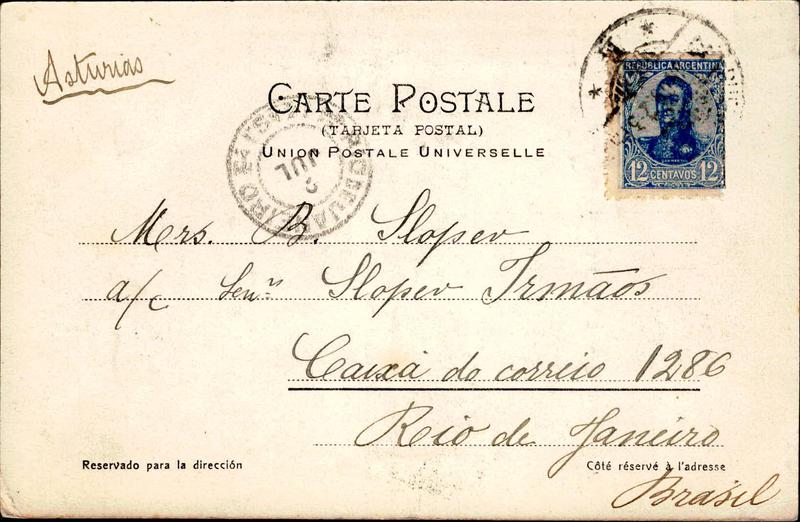 Asturias
REPUBLICA ARGENTINA
CARTE POSTALE
(TARJETA POSTAL)
UNION POSTALE UNIVERSELLE
SAN MARTIN
12 CENTAVOS 12
JUL
2
RIO DE JANEIRO
Mrs. B. Sloper
a/c Senrs Sloper Irmãos
Caixa do correio 1286
Rio de Janeiro
Reservado para la dirección
Côté réservé à l'adresse
Brasil